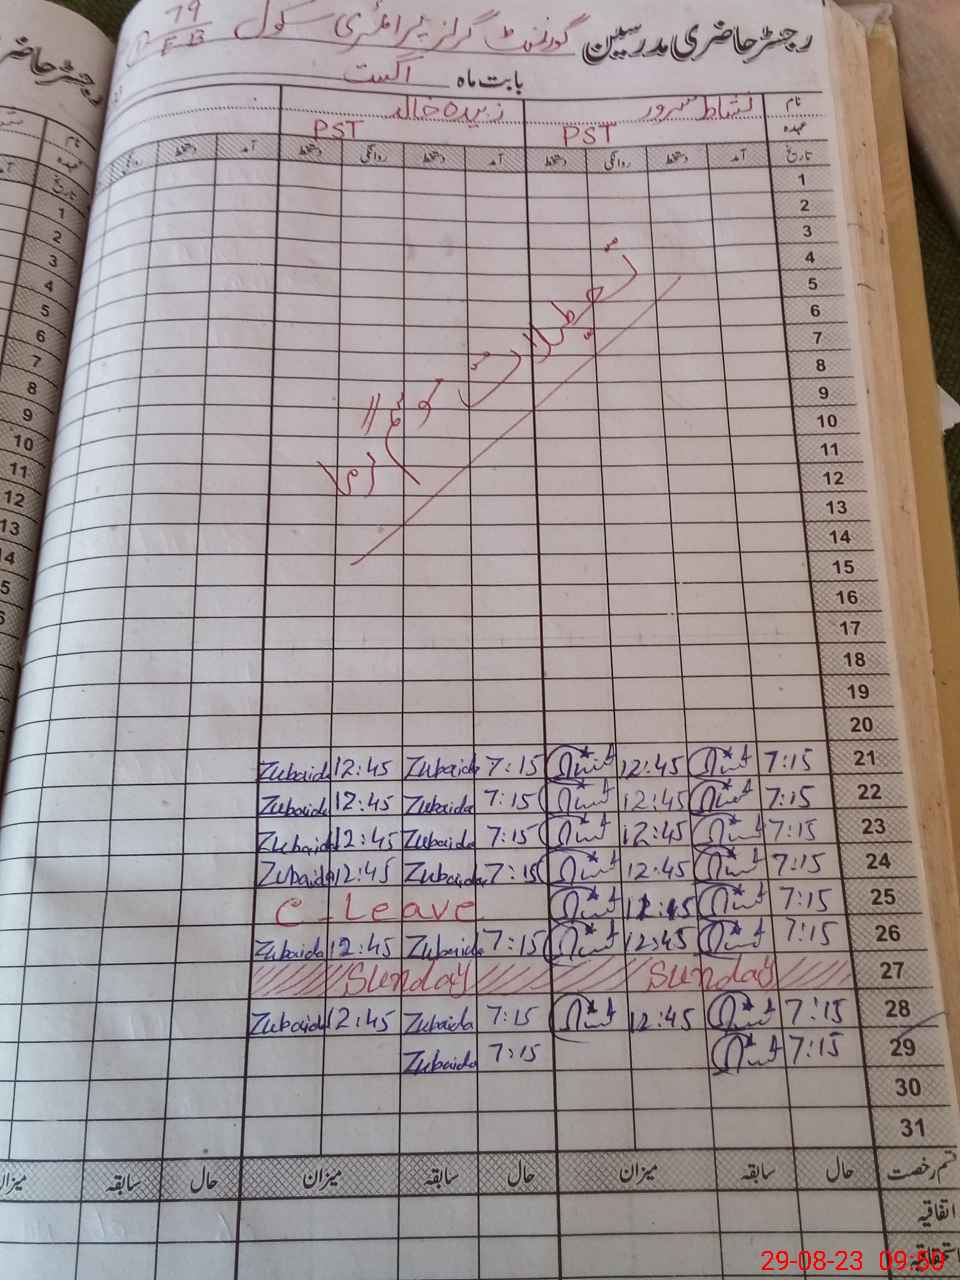 رجسٹر حاضری مدرسین گورنمنٹ گرلز پرائمری سکول 79 / EB
بابت ماہ اگست
نام نشاط سرور زبیدہ خالد
عہدہ PST PST
تاریخ آمد دستخط روانگی دستخط آمد دستخط روانگی دستخط آمد دستخط روانگی
1
2
3
4
5
6
7
8
9
10
11
12
13
14
15
16
17
18
19
20
تعطیلات موسم گرما
21 7:15 12:45 7:15 Zubaida 12:45 Zubaida
22 7:15 12:45 7:15 Zubaida 12:45 Zubaida
23 7:15 12:45 7:15 Zubaida 12:45 Zubaida
24 7:15 12:45 7:15 Zubaida 12:45 Zubaida
25 7:15 12:45 C-Leave
26 7:15 12:45 7:15 Zubaida 12:45 Zubaida
27 Sunday Sunday
28 7:15 12:45 7:15 Zubaida 12:45 Zubaida
29 7:15 7:15 Zubaida
30
31
قسم رخصت حال سابقہ میزان حال سابقہ میزان حال سابقہ میزان
اتفاقیہ
استحقاقیہ
رجسٹر حاضر
نام
عہدہ
تاریخ
1
2
3
4
5
6
7
8
9
10
11
12
13
14
29-08-23 09:50